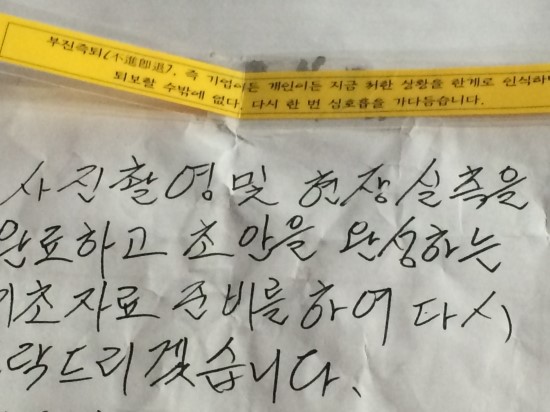 부진즉퇴(不進卽退), 즉 기업이든 개인이든 지금 처한 상황을 한계로 인식하
퇴보할 수밖에 없다. 다시 한 번 심호흡을 가다듬습니다.
사진촬영및 현장실측을
완료하고 초안을 완성하는
기초자료 준비를하여 다시
락드리겠습니다.